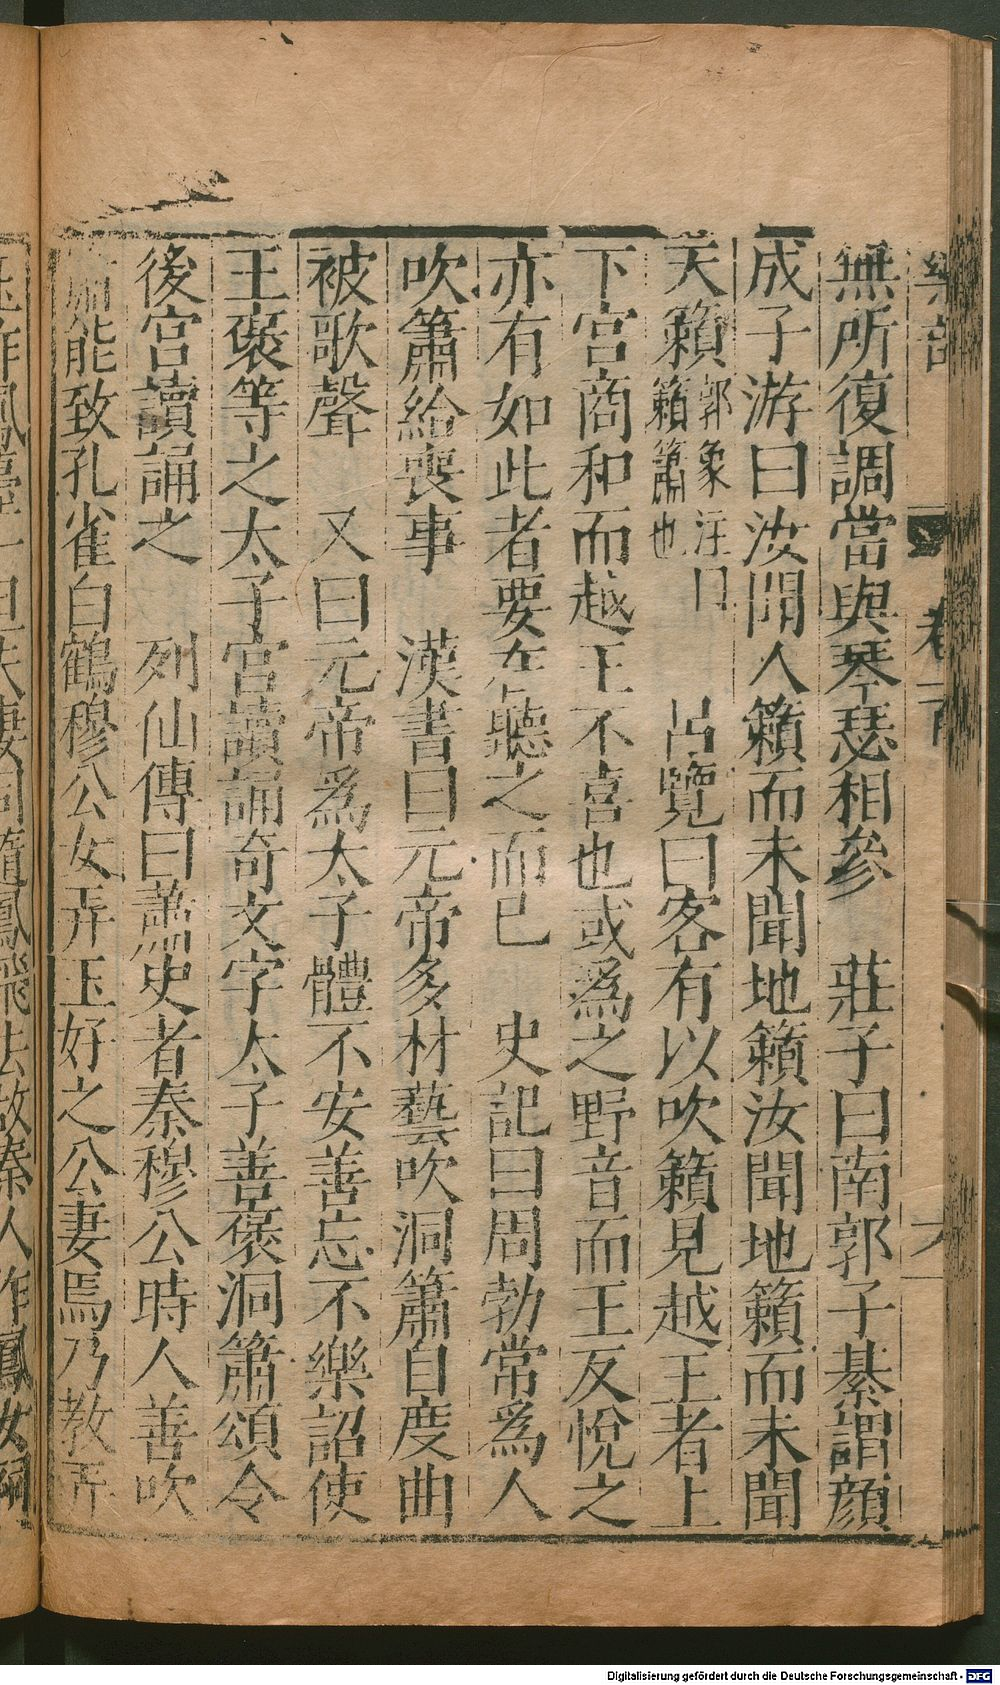 無所復調當與琴瑟相參　莊子曰南郭子綦謂顏
成子游曰汝聞人籟而未聞地籟汝聞地籟而未聞
天籟郭象注曰籟簫也　呂覽曰客有以吹籟見越王者上
下宮商和而越王不喜也或爲之野音而王反悅之
亦有如此者要在聽之而已　史記曰周勃常爲人
吹簫給喪事　漢書曰元帝多材藝吹洞簫自度曲
被歌聲　又曰元帝爲太子體不安善忘不樂詔使
王褒等之太子宮讀誦奇文字太子善褒洞簫頌令
後宮讀誦之　列仙傳曰蕭史者秦穆公時人善吹
簫能致孔雀白鶴穆公女弄玉好之公妻焉乃教弄
作鳳臺一旦夫妻同隨鳳飛去故秦人作鳳女祠
Digitalisierung gefördert durch die Deutsche Forschungsgemeinschaft - DFG